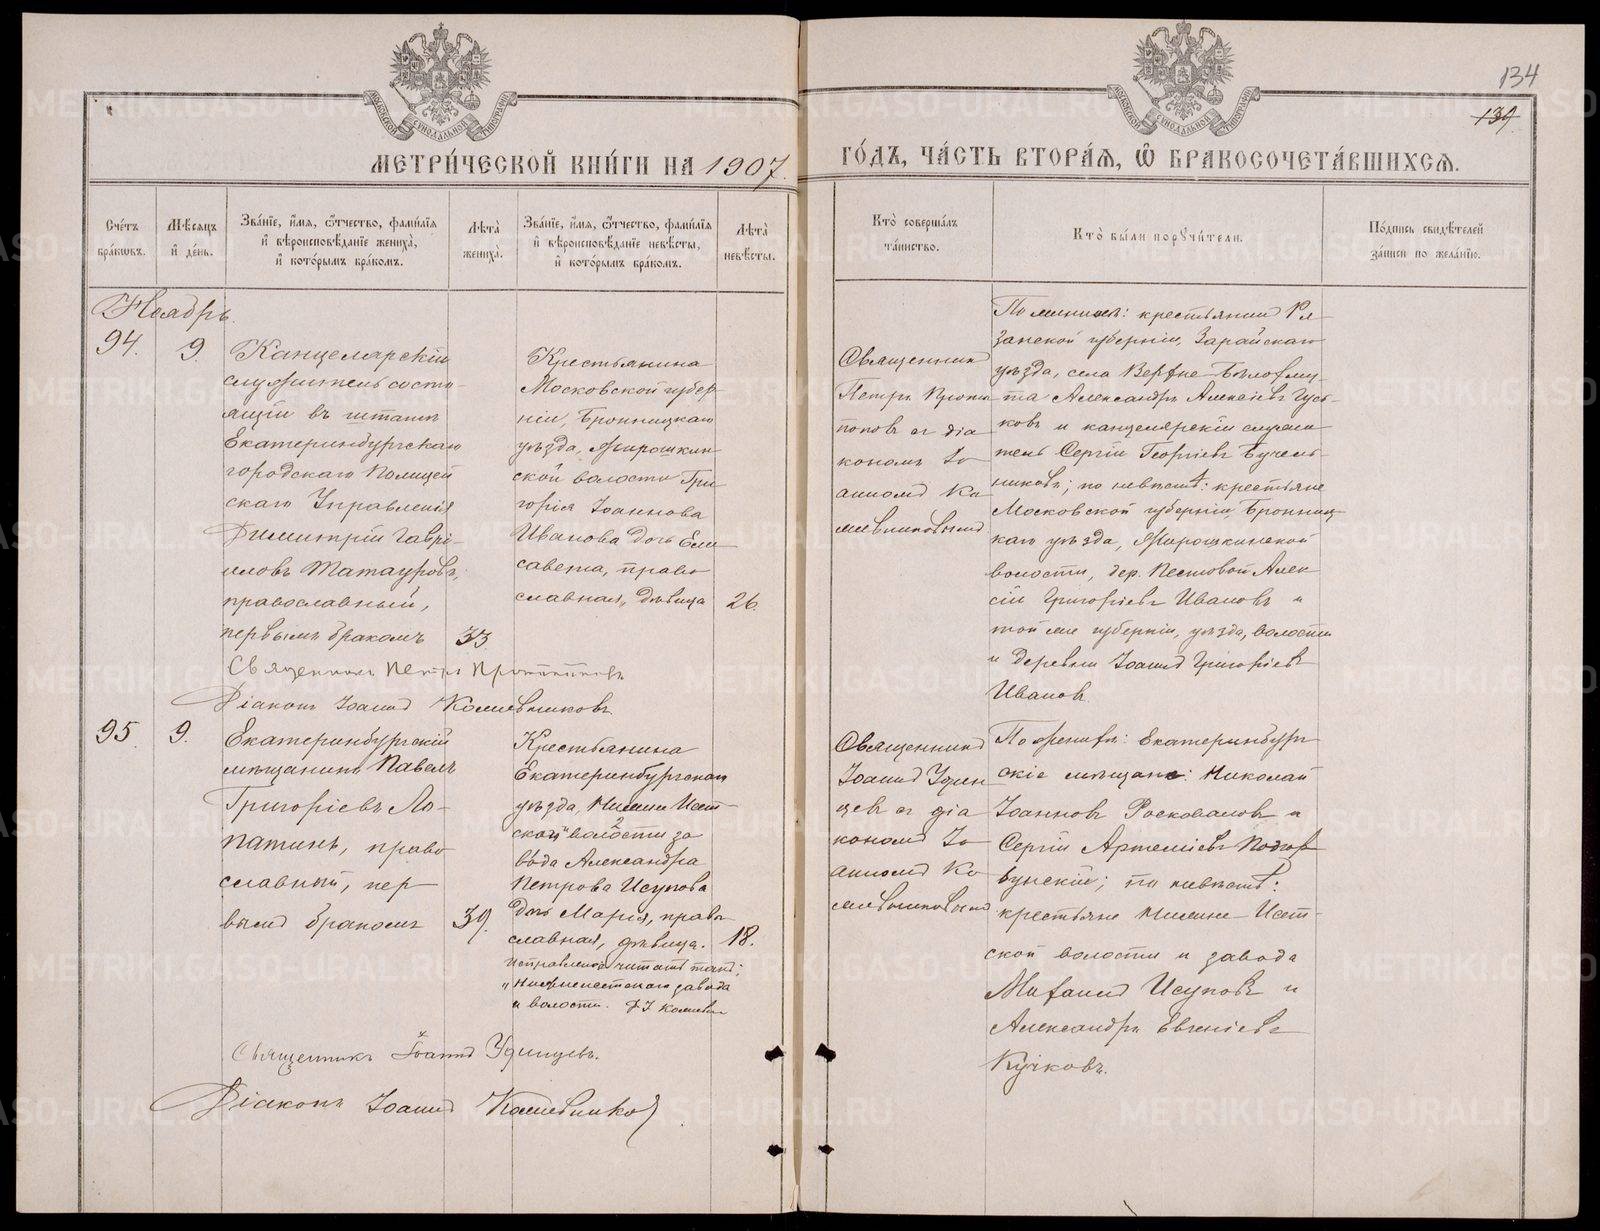 134
139.
МЕТРИ́ЧЕСКОЙ КНИ́ГИ НА 1907.
ГО́ДЪ, ЧА́СТЬ ВТОРА́Ѧ, Ѡ҆ БРАКОСОЧЕТА́ВШИХСѦ.
Сче́тъ
бра́кѡвъ.
Мѣ́сяцъ
и҆ де́нь.
Зва́нїе, и҆́мѧ, ѻ҆́тчество, фами́лїѧ
и҆ вѣроисповѣ́данїе жениха̀,
и҆ кото́рымъ бра́комъ.
Лѣ́та
жениха̀.
Зва́нїе, и҆́мѧ, ѻ҆́тчество, фами́лїѧ
и҆ вѣроисповѣ́данїе невѣ́сты,
и҆ кото́рымъ бра́комъ.
Лѣ́та
невѣ́сты.
Кто̀ соверша́лъ
та́инство.
Кто̀ бы́ли порꙋчи́тели.
По́дпись свидѣ́телей
за́писи по жела́нїю.
Ноябрь.
94.
9.
Канцелярскій
служитель состо-
ящій въ штатѣ
Екатеринбургскаго
городскаго Полицей
скаго Управленія
Димитрій Гаврі-
иловъ Татауровъ,
православный,
первымъ бракомъ
33
Крестьянина
Московской губер-
ніи, Бронницкаго
уѣзда, Жирошкин-
ской волости Гри-
горія Іоаннова
Иванова дочь Ели-
савета, право
славная, дѣвица
26.
Священникъ
Петръ Прото
поповъ съ діа
кономъ Іо
анномъ Ко
жевниковымъ
По женихѣ: крестьянинъ Ря-
занской губерніи, Зарайскаго
уѣзда, села Верхне-Бѣлому-
та Александръ Алексіевъ Гусь-
ковъ и канцелярскій служи
тель Сергій Георгіевъ Бучель-
никовъ; по невѣстѣ: крестьяне
Московской губерніи, Бронниц
каго уѣзда, Жирошкинской
волости, дер. Пестовой Алек
сій Григоріевъ Ивановъ и
той же губерніи, уѣзда, волости
и деревни Іоаннъ Григоріевъ
Ивановъ.
Священникъ Петръ Протопоповъ
Діаконъ Іоаннъ Кожевниковъ
95.
9.
Екатеринбургскій
мѣщанинъ Павелъ
Григоріевъ Ло-
патинъ, право
славный, пер
вымъ бракомъ
39.
Крестьянина
Екатеринбургскаго
уѣзда, Нижне-Исет-
ской волости за
вода Александра
Петрова Исупова
дочь Марія, право
славная, дѣвица.
18.
Исправленно читать такъ:
„Нижнеисетскаго завода
и волости. Д І Кожевн
Священникъ
Іоаннъ Удин
цевъ съ діа
кономъ Іо
анномъ Ко
жевниковымъ
По женихѣ: Екатеринбург
скіе мѣщане: Николай
Іоанновъ Росковаловъ и
Сергій Артеміевъ Подкор
бунскій; по невѣстѣ:
крестьяне Нижне-Исет-
ской волости и завода
Михаилъ Исуповъ и
Александръ Евгеніевъ
Кучковъ.
Священникъ Іоаннъ Удинцевъ.
Діаконъ Іоаннъ Кожевниковъ